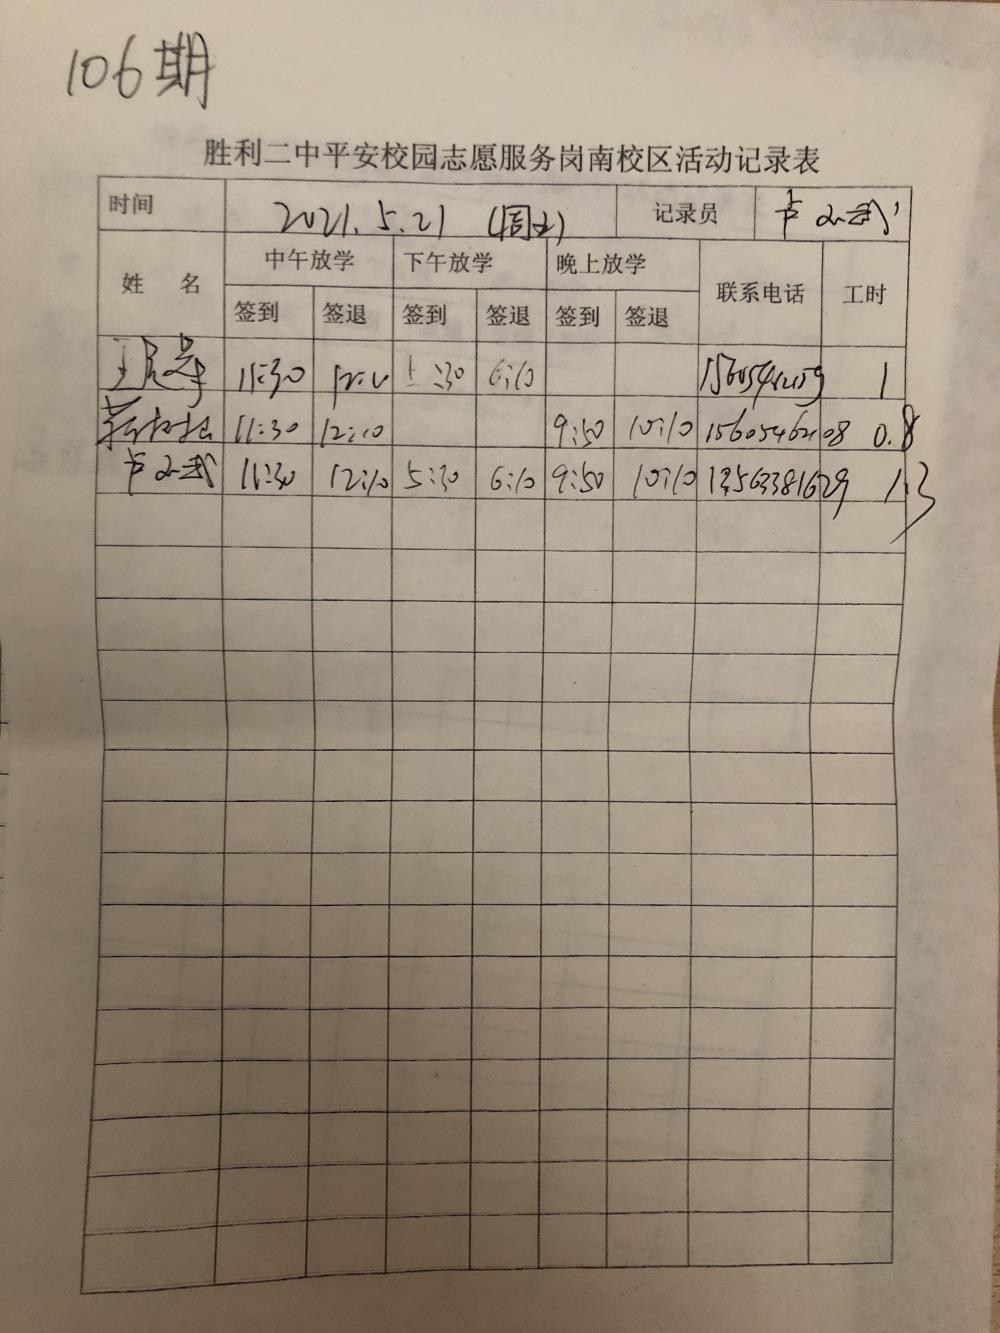 106期
胜利二中平安校园志愿服务岗南校区活动记录表
时间 2021.5.21 (周五) 记录员 卢
姓 名 中午放学 下午放学 晚上放学 联系电话 工时
签到 签退 签到 签退 签到 签退
王 11:30 5:30 6:10 1
11:30 12:10 9:50 10:10 15605462108 0.8
卢 11:30 12:10 5:30 6:10 9:50 10:10 13563381629 1.3